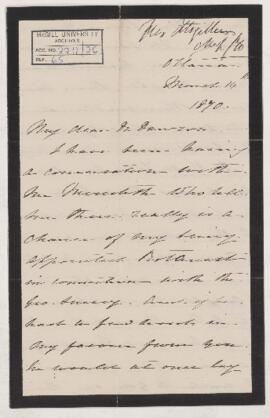 McGILL UNIVERSITY
ARCHIVES
ACC. NO.
REF. 65
Ottawa
March 14th
1870.
My dear Dr Dawson
I have been having
a conversation with
Mr Meredith who tells
me there really is a
chance of my being
appointed Botanist
in connection with the
Geo. Survey. And if he
had to find words in
my favour from you
he would at once lay